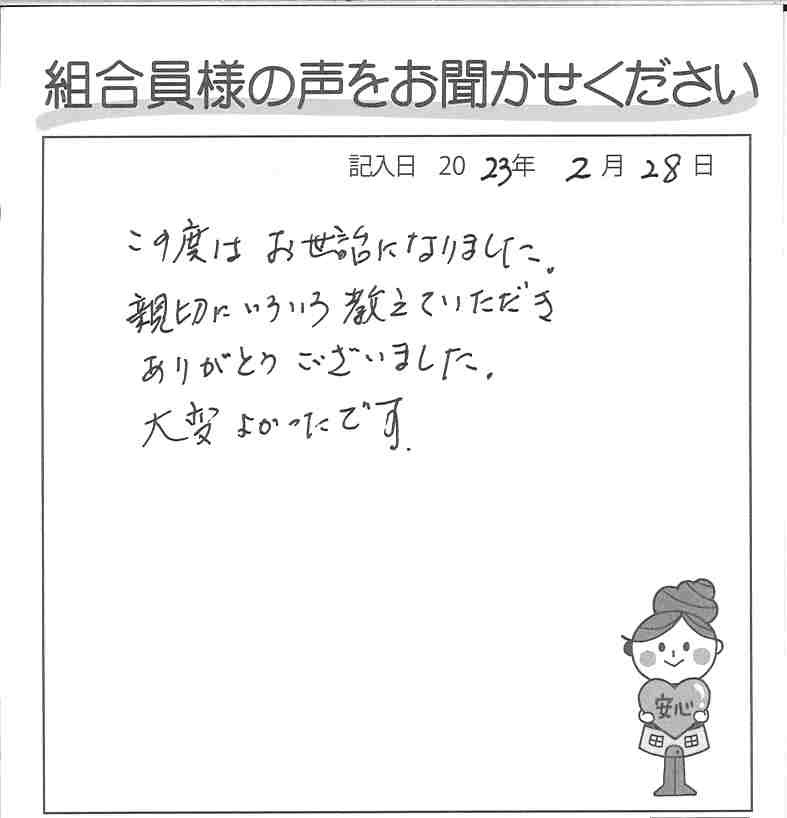 組合員様の声をお聞かせください
記入日 2023年 2月28日
この度は お世話になりました。
親切にいろいろ教えていただき
ありがとうございました。
大変よかったです。
安心